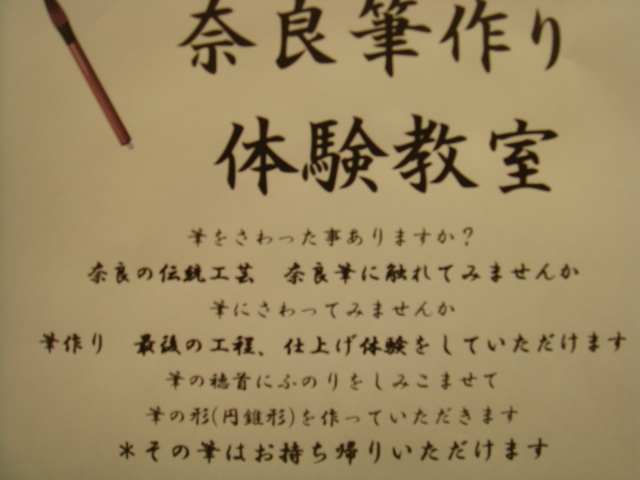 奈良筆作り
体験教室
筆をさわった事ありますか?
奈良の伝統工芸 奈良筆に触れてみませんか
筆にさわってみませんか
筆作り 最後の工程、仕上げ体験をしていただけます
筆の穂首にふのりをしみこませて
筆の形(円錐形)を作っていただきます
*その筆はお持ち帰りいただけます